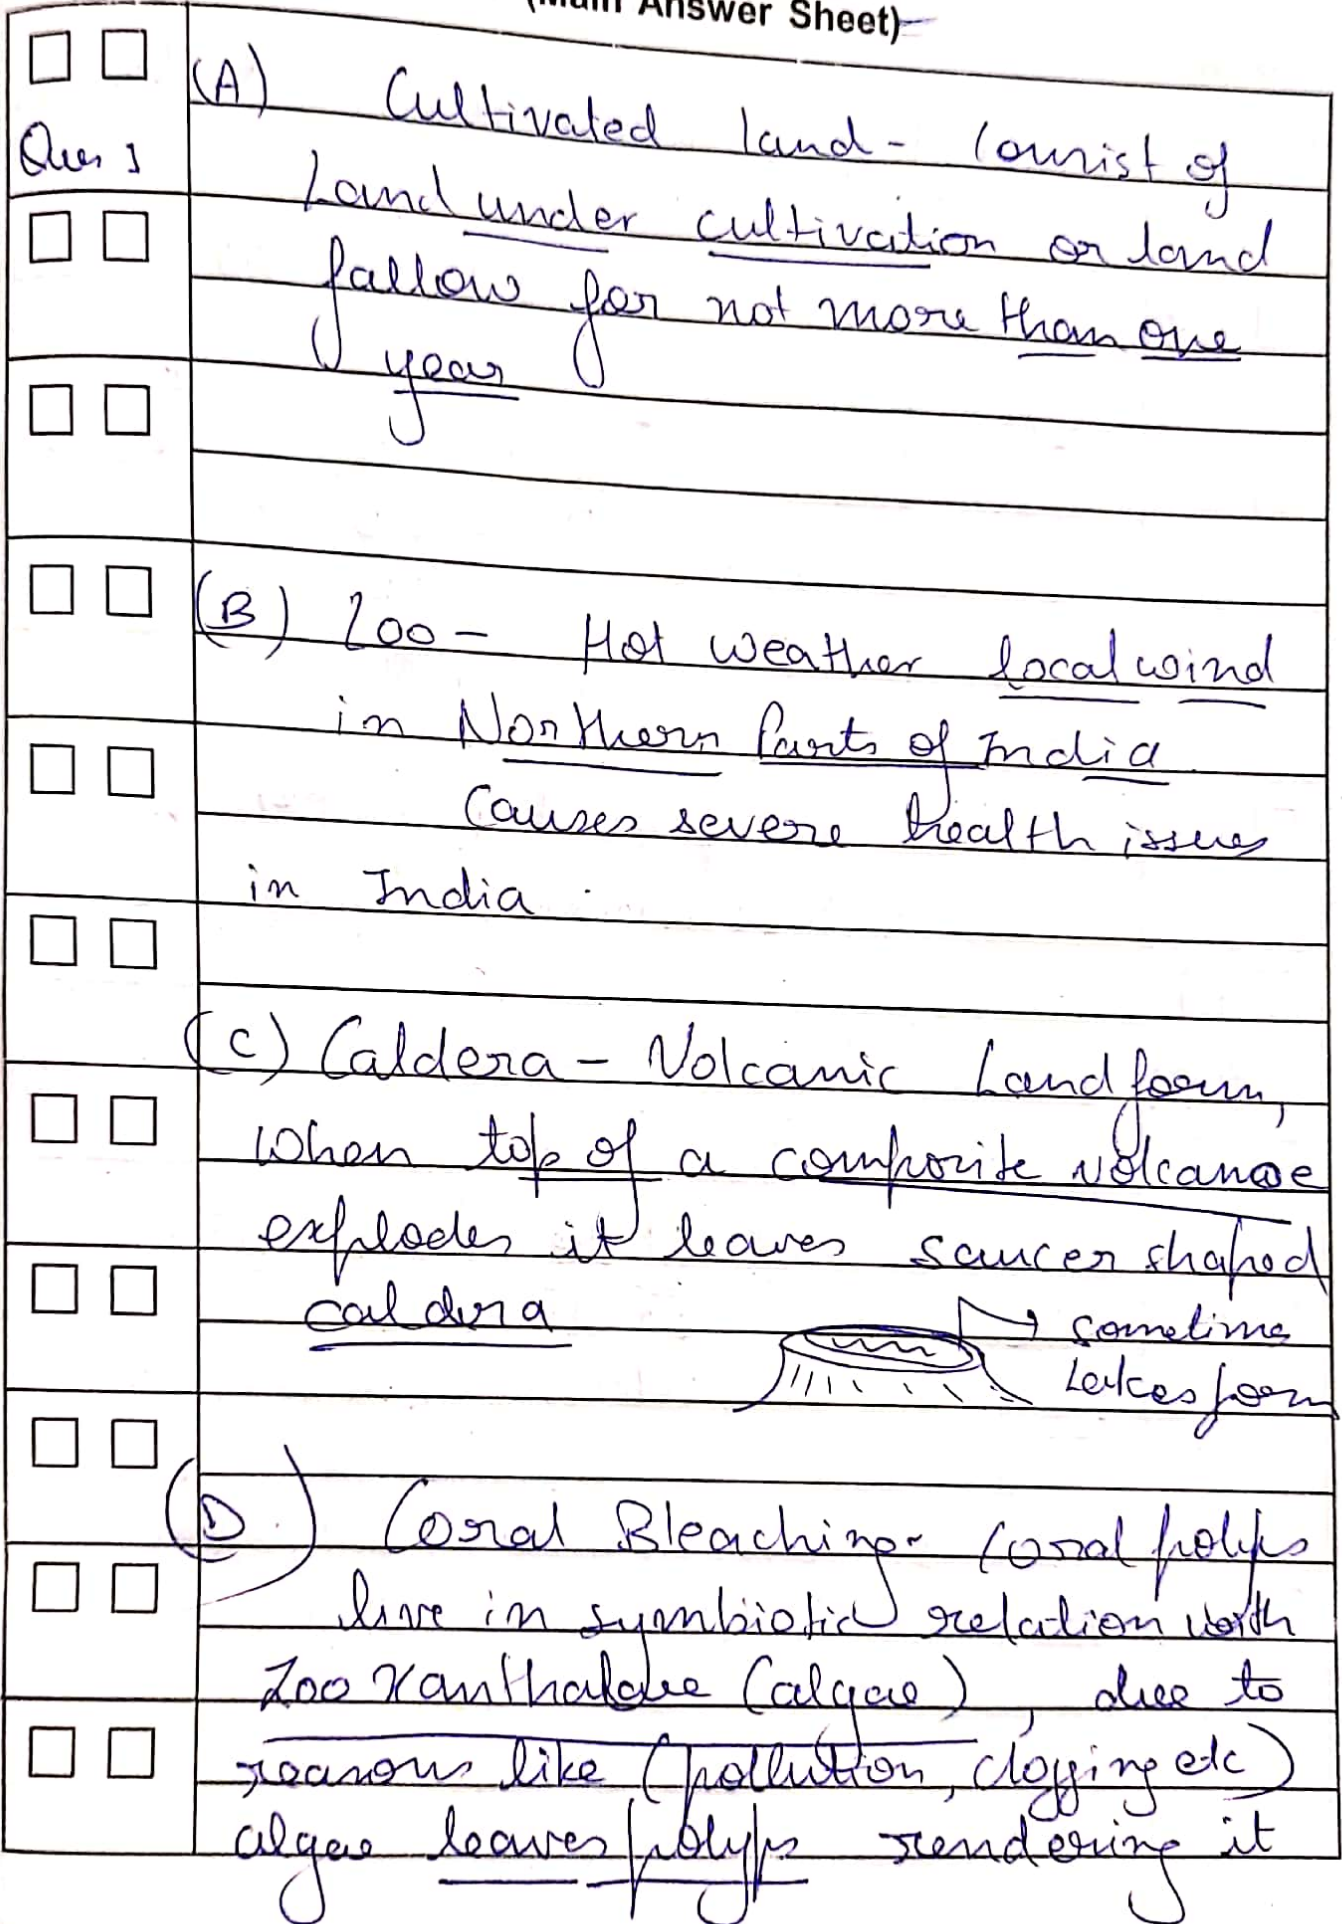 (Main Answer Sheet)
Ques 1
(A) Cultivated land - Consist of
Land under cultivation or land
fallow for not more than one
year
(B) Loo - Hot weather local wind
in Northern Parts of India
Causes severe health issues
in India.
(C) Caldera - Volcanic Landform,
when top of a composite volcanoe
explodes it leaves saucer shaped
caldera
sometimes
Lakes form
(D) Coral Bleaching - Coral polyps
live in symbiotic relation with
(algae), due to
reasons like (pollution, clogging etc)
algae leaves polyps rendering it